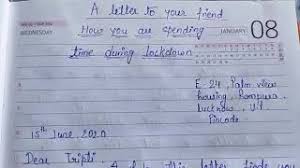 A letter to your friend
WEDNESDAY
How you are spending
JANUARY 08
time during lockdown
E-24, Palm view
housing, Rampura
lucknow, U.P
Pincode
15th June, 2020
Dear Tripti,
this letter finds you